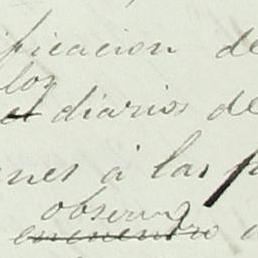 ificacion de
los
el diarios de
nes á las
observa
encuentro